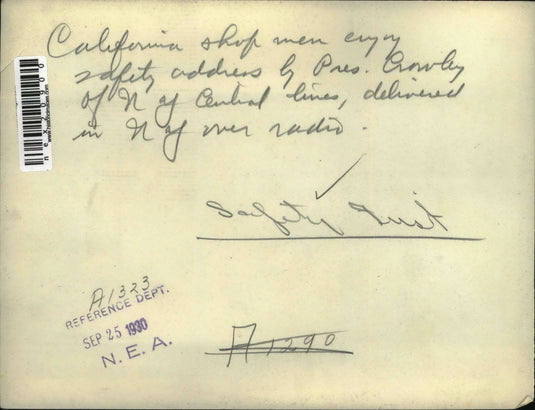 California shop men enjoy
safety address by Pres. Crowley
of N Y Central lines, delivered
in N Y over radio.
Safety First
A1323
REFERENCE DEPT.
SEP 25 1930
N. E. A.
A1290